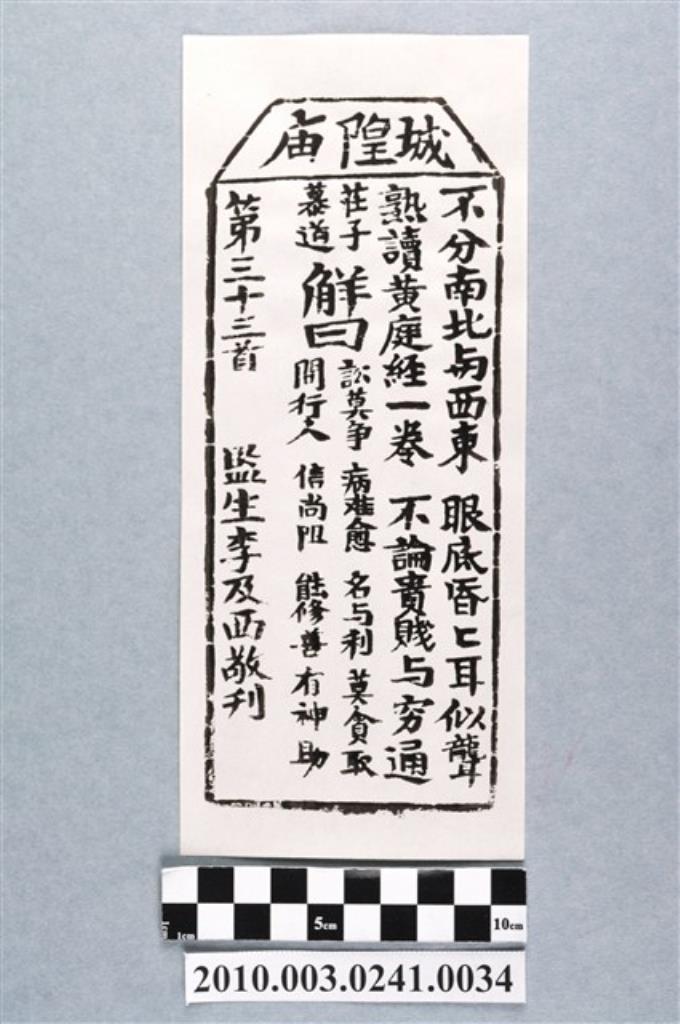 城隍庙
不分南北与西東 眼底昏匕耳似聾
熟讀黄庭經一卷 不論貴賤与穷通
荘子慕道
觧曰
訟莫争 病难愈 名与利 莫貪取
開行人 信尚阻 能修善 有神助
第三十三首 監生李及西敬刋
1cm 5cm 10cm
2010.003.0241.0034